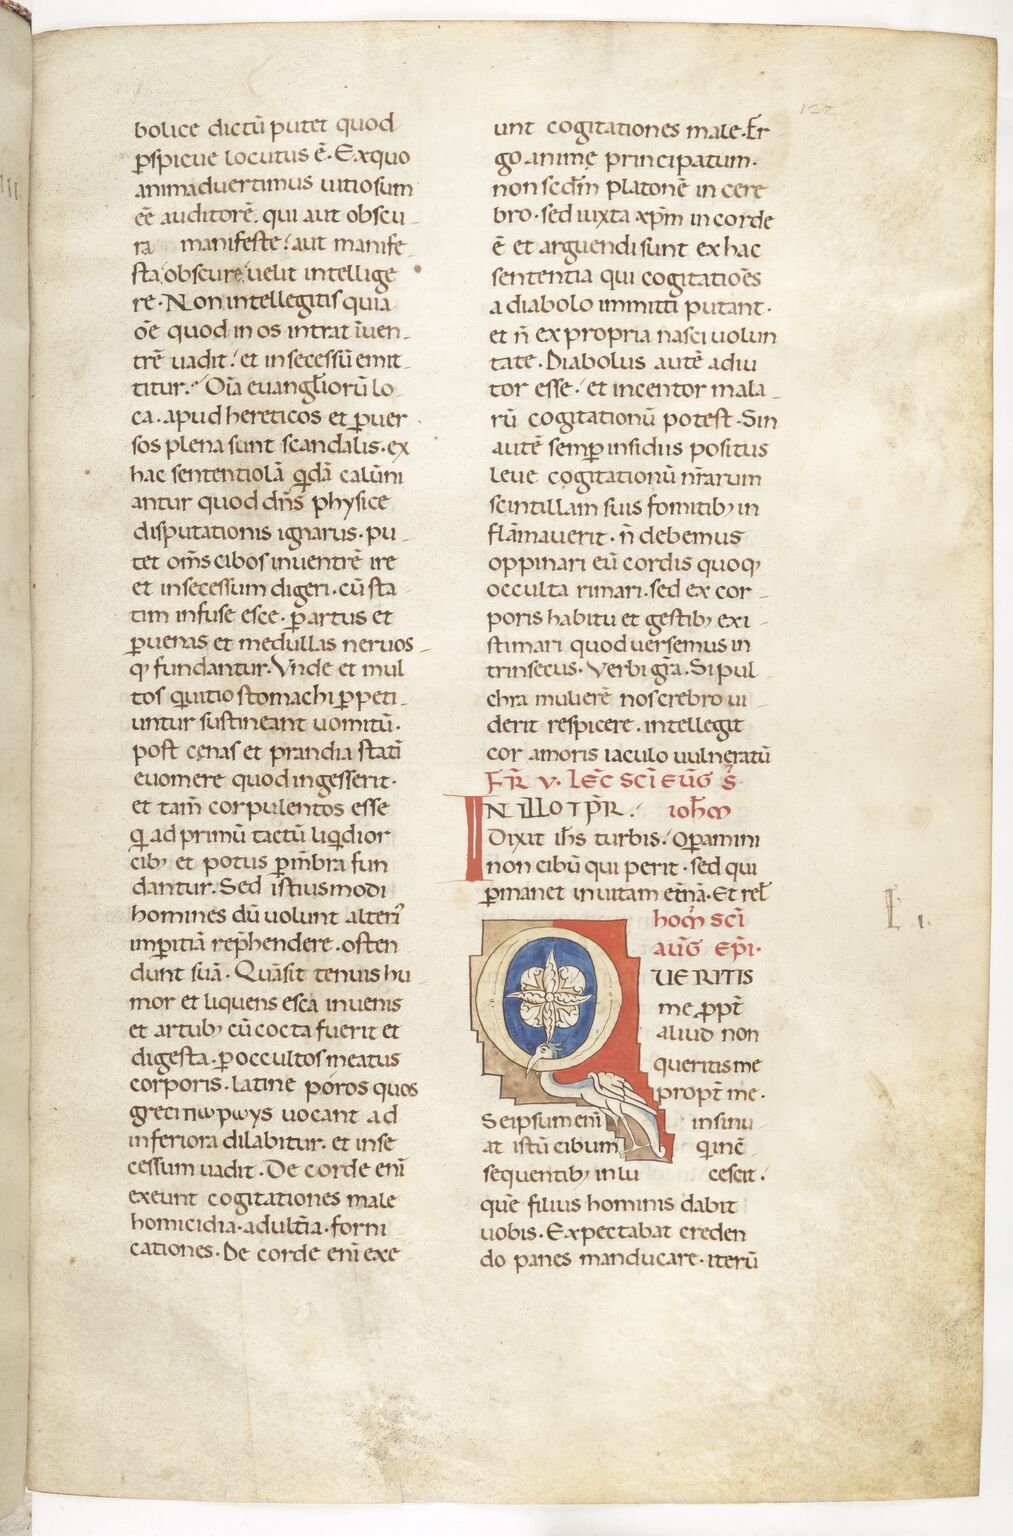 bolice dictū putet quod
ꝑspicue locutus ē. Exquo
animaduertimus uitiosum
eē auditorē. qui aut obscu-
ra manifeste; aut manife-
sta obscure uelit intellige
re. Non intellegitis quia
om̄e quod in os intrat ī uen-
trē uadit; et in secessū emit-
titur. Om̄ia euangl̄iorū lo-
ca. apud hereticos et ꝑuer-
sos plena sunt scandalis. ex
hac sententiolā qͥdā calūni
antur quod dn̄s physice
disputationis ignarus. pu-
tet om̄s cibos in uentrē ire
et in secessum digeri. cū sta-
tim infuse esce. ꝑ artus et
ꝑ uenas et medullas neruos-
qꝫ fundantur. Vnde et mul
tos qͥ uitio stomachi ꝑpeti-
untur sustineant uomitū.
post cęnas et prandia statī
euomere quod ingesserit.
et tam̄ corpulentos esse
qͥ ad primū tactū liqͥdior
cibꝫ et potus ꝑ mēbra fun
dantur. Sed istiusmodi
homines dū uolunt alteriꝰ
imꝑitiā rep̄hendere. osten
dunt suā. Quāsit tenuis hu-
mor et liquens esca in uenis
et artubꝫ cū cocta fuerit et
digesta. ꝑ occultos meatus
corporis. latine poros quos
greci πωρωys uocant ad
inferiora dilabitur. et in se
cessum uadit. De corde eni
exeunt cogitationes male
homicidia. adult̄ia. forni
cationes. De corde eni exe
unt cogitationes male. Er
go animę principatum.
non scdm̄ platonē in cere
bro. sed iuxta xp̄m in corde
ē et arguendi sunt ex hac
sententia qui cogitatiōes
a diabolo immitti putant.
et n̄ ex propria nasci uolun
tate. Diabolus autē adiu
tor esse; et incentor mala-
rū cogitationū potest. Sin
autē semꝑ insidiis positus
leue cogitationū nr̄arum
scintillam suis fomitibꝫ in
flāmauerit. n̄ debemus
oppinari eū cordis quoqꝫ
occulta rimari. sed ex cor-
poris habitu et gestibꝫ exi-
stimari quod uersemus in
trinsecus. Verbi gr̄a. Si pul
chra mulierē nos crebro ui-
derit respicere. intellegit
cor amoris iaculo uulneratū
FR̄ V. LEC̄ SCI EUG̅ S̄
IN ILLO TP̄R. ioħem
Dixit ih̄s turbis; Oꝑamini
non cibū qui perit. sed qui
ꝑmanet in uitam et̄nā. Et rel̄
hom̄ sci
auḡ ep̄i.
QUERITIS
me ꝓpt̄
aliud non
queritis me
propt̄ me.
Seipsum eni insinu
at istū cibum qͥ in c̄
sequentibꝫ in lu cescit.
quē filius hominis dabit
uobis. Expectabat creden
do panes manducare. iterū